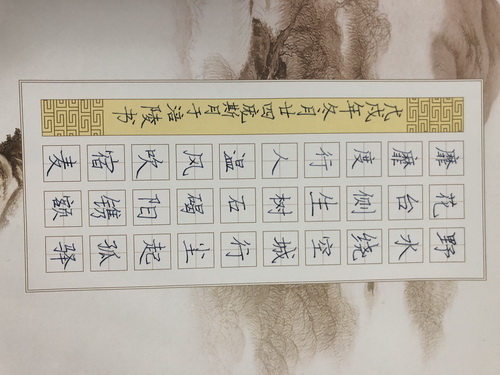 野水绕空城行尘起孤驿
花台侧生树石碣阳镌额
靡靡度行人温风吹宿麦
戊戌年冬月廿四庞斯月于涪陵书